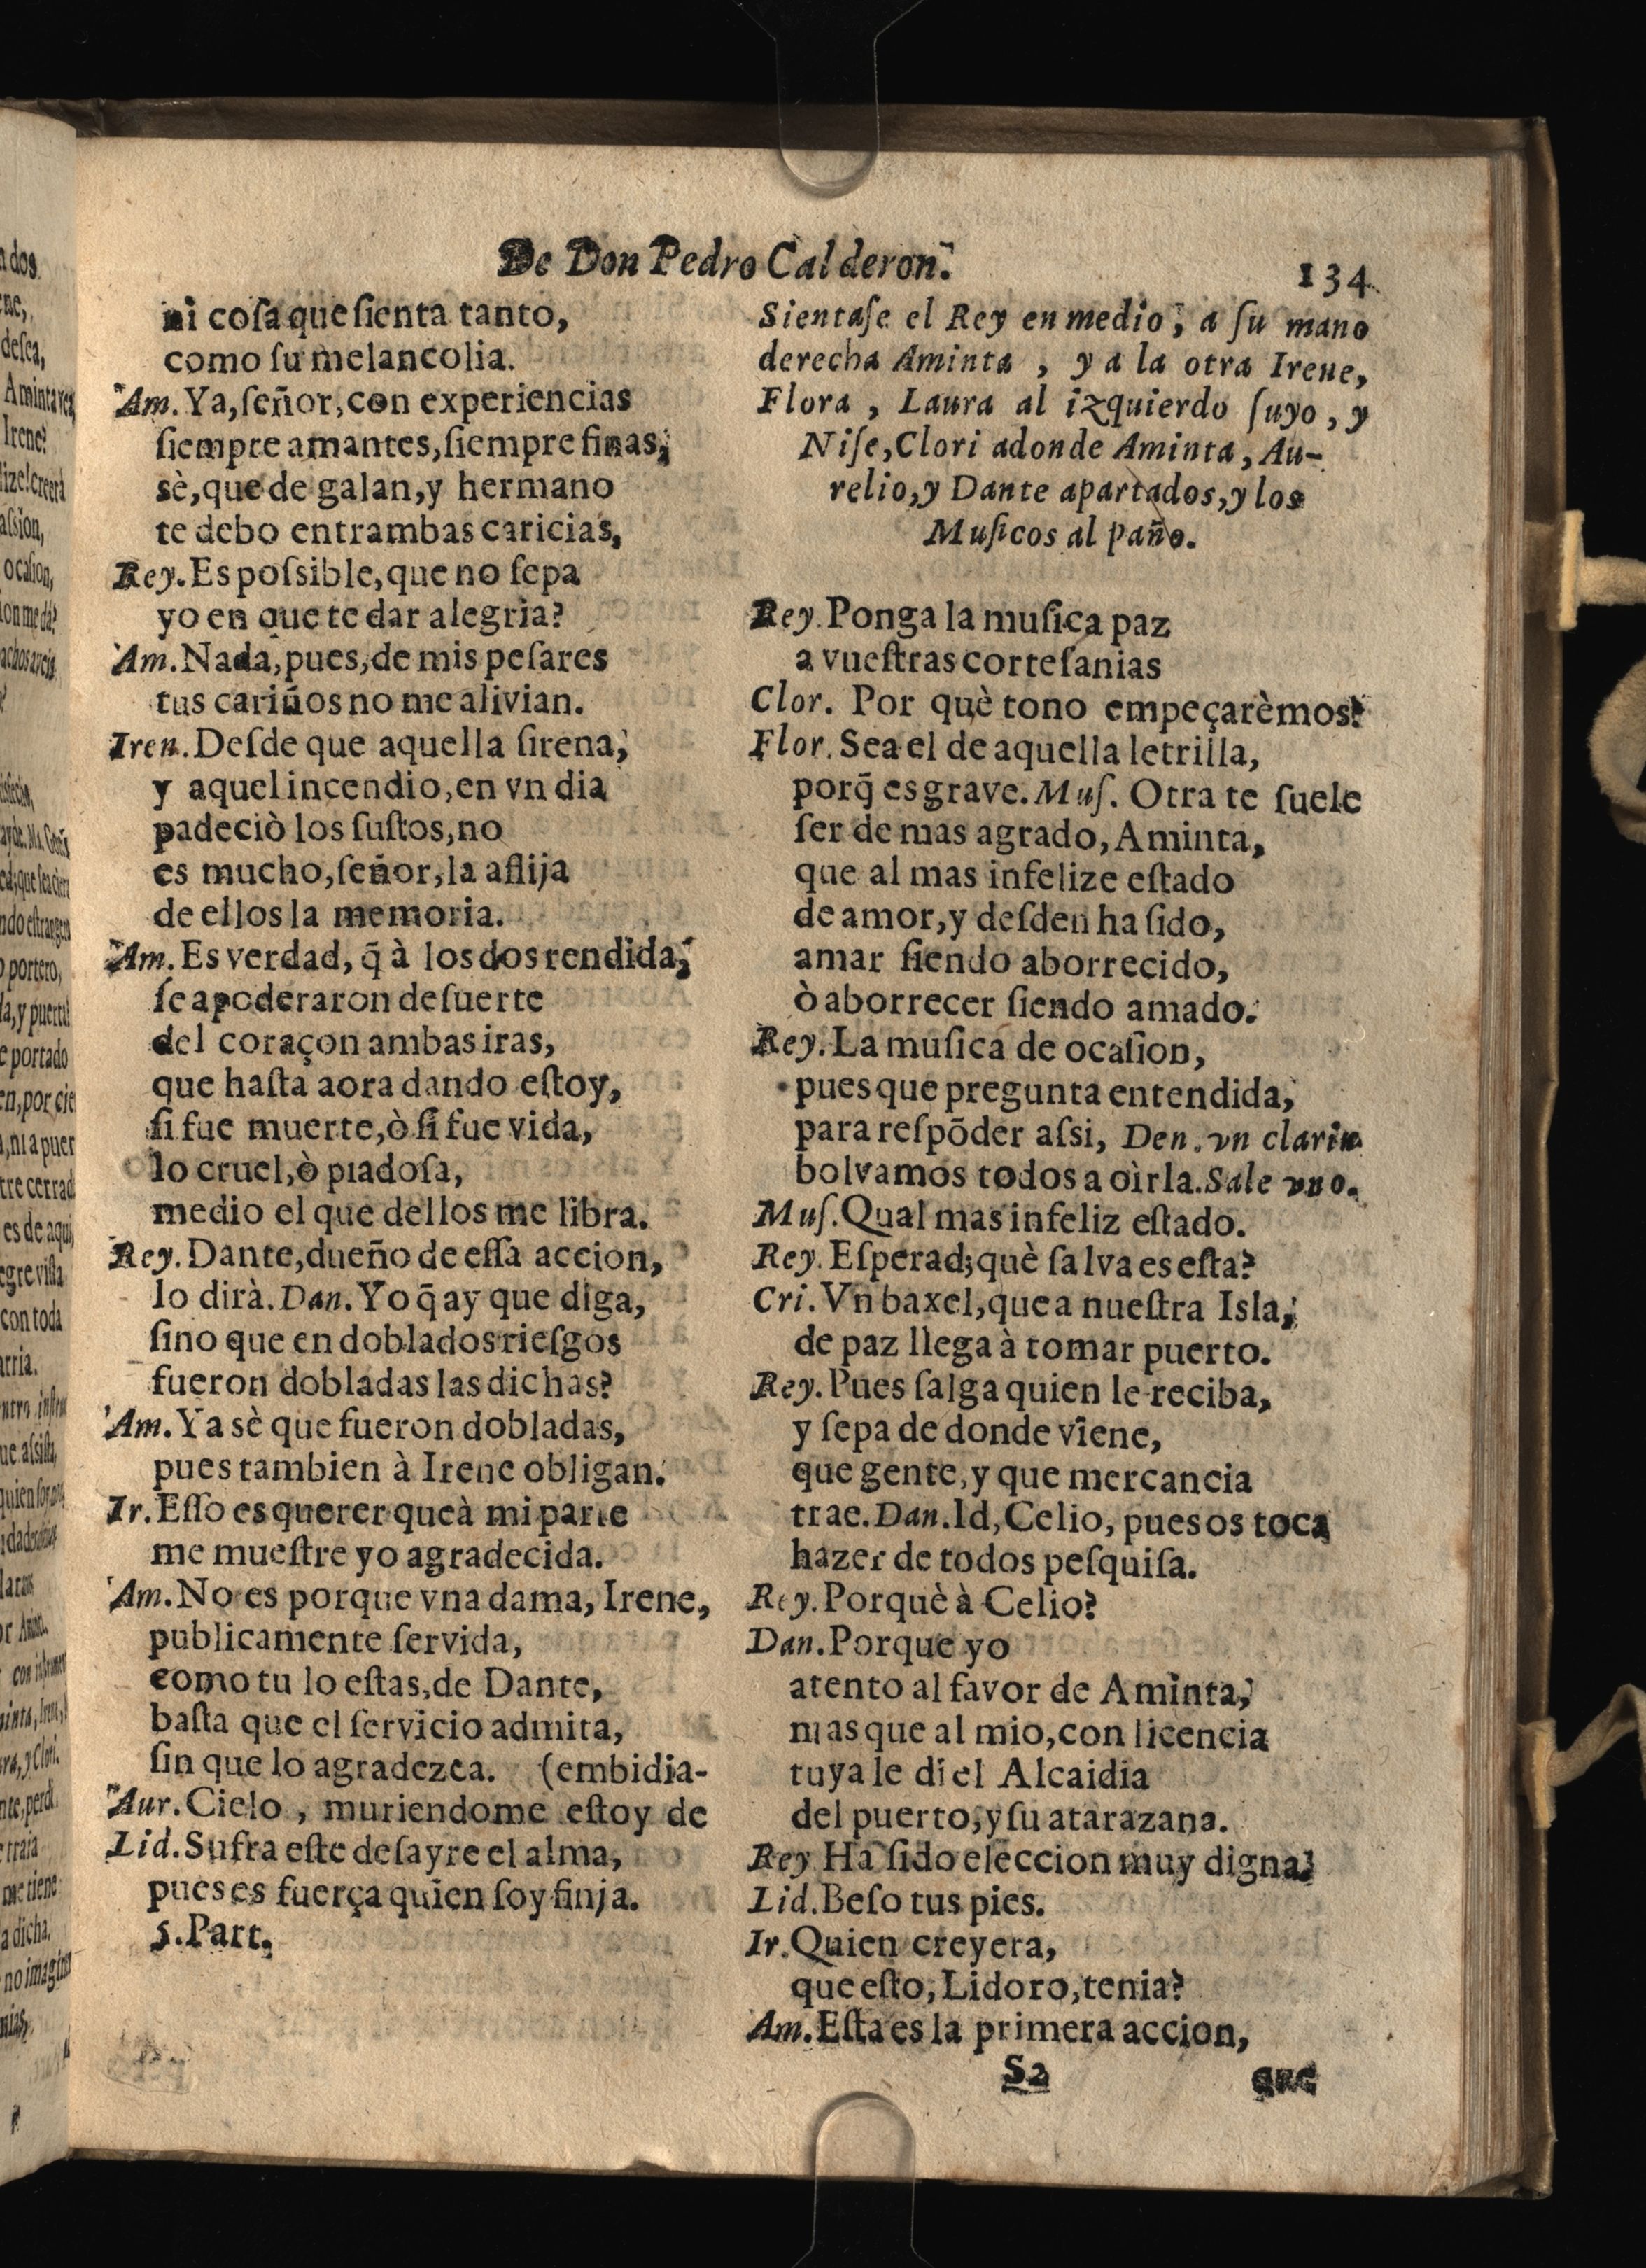 De Don Pedro Calderon.
134
ni coſa que ſienta tanto,
como ſu melancolia.
Am. Ya, ſeñor, con experiencias
ſiempre amantes, ſiempre finas,
sè, que de galan, y hermano
te debo entrambas caricias,
Rey. Es poſsible, que no ſepa
yo en que te dar alegria?
Am. Nada, pues, de mis peſares
tus cariños no me alivian.
Iren. Deſde que aquella ſirena,
y aquel incendio, en vn dia
padeciò los ſuſtos, no
es mucho, ſeñor, la aflija
de ellos la memoria.
Am. Es verdad, q̃ à los dos rendida,
ſe apoderaron de ſuerte
del coraçon ambas iras,
que haſta aora dando eſtoy,
ſi fue muerte, ò ſi fue vida,
lo cruel, ò piadoſa,
medio el que dellos me libra.
Rey. Dante, dueño de eſſa accion,
lo dirà. Dan. Yo q̃ ay que diga,
ſino que en doblados rieſgos
fueron dobladas las dichas?
Am. Ya sè que fueron dobladas,
pues tambien à Irene obligan.
Ir. Eſſo es querer que à mi parte
me mueſtre yo agradecida.
Am. No es porque vna dama, Irene,
publicamente ſervida,
como tu lo eſtas, de Dante,
baſta que el ſervicio admita,
ſin que lo agradezca. (embidia-
Aur. Cielo, muriendome eſtoy de
Lid. Sufra eſte deſayre el alma,
pues es fuerça quien ſoy finja.
5. Part.
Sientaſe el Rey en medio, a ſu mano
derecha Aminta, y a la otra Irene,
Flora, Laura al izquierdo ſuyo, y
Niſe, Clori adonde Aminta, Au-
relio, y Dante apartados, y los
Muſicos al paño.
Rey. Ponga la muſica paz
a vueſtras corteſanias
Clor. Por què tono empeçarèmos?
Flor. Sea el de aquella letrilla,
porq̃ es grave. Muſ. Otra te ſuele
ſer de mas agrado, Aminta,
que al mas infelize eſtado
de amor, y deſden ha ſido,
amar ſiendo aborrecido,
ò aborrecer ſiendo amado.
Rey. La muſica de ocaſion,
pues que pregunta entendida,
para reſpõder aſsi, Den. vn clarin
bolvamos todos a oìrla. Sale vno.
Muſ. Qual mas infeliz eſtado.
Rey. Eſperad; què ſalva es eſta?
Cri. Vn baxel, que a nueſtra Isla,
de paz llega à tomar puerto.
Rey. Pues ſalga quien le reciba,
y ſepa de donde viene,
que gente, y que mercancia
trae. Dan. Id, Celio, pues os toca
hazer de todos peſquiſa.
Rey. Porquè à Celio?
Dan. Porque yo
atento al favor de Aminta,
mas que al mio, con licencia
tuya le di el Alcaidia
del puerto, y ſu atarazana.
Rey Ha ſido eleccion muy digna.
Lid. Beſo tus pies.
Ir. Quien creyera,
que eſto, Lidoro, tenia?
Am. Eſta es la primera accion,
S2
que